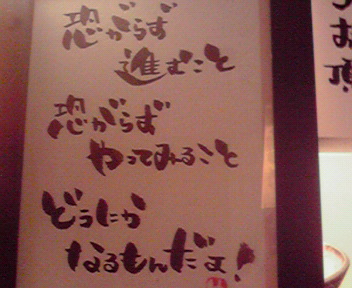 恐がらず
進むこと
恐がらず
やってみること
どうにか
なるもんだよ!
お頂